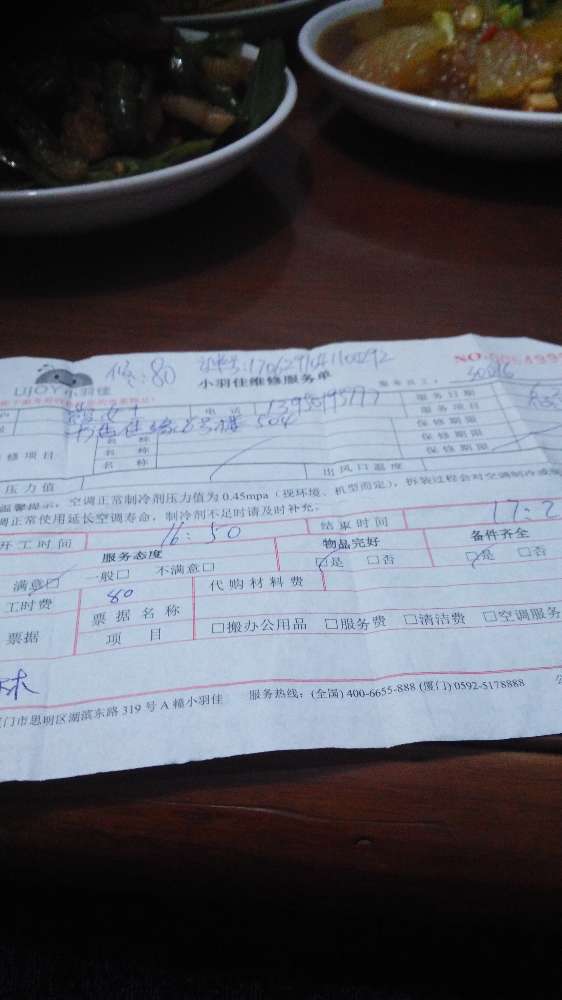 修:80 170629104110092
NO
UJOY小羽佳 小羽佳维修服务单 服务员工:
电话 服务日期
504 服务项目
修项目 名 称 保修期限
名 称 保修期限
名 称 保修期限
压力值 出风口温度
温馨提示:空调正常制冷剂压力值为 0.45mpa(视环境、机型而定),拆装过程会对空调制冷
调正常使用延长空调寿命,制冷剂不足时请及时补充.
开工时间 16:50 结束时间 17:2
服务态度 物品完好 备件齐全
满意□ 一般□ 不满意□ □是 □否 □是 □否
工时费 80 代购材料费
票据 票据名称 □搬办公用品 □服务费 □清洁费 □空调服务
项 目
门市思明区湖滨东路 319 号 A 幢小羽佳 服务热线:(全国) 400-6655-888 (厦门) 0592-5178888